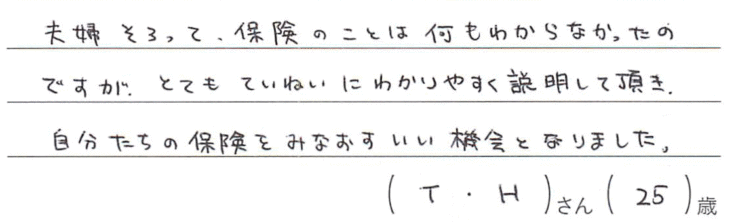 夫婦そろって、保険のことは何もわからなかったの
ですが、とてもていねいにわかりやすく説明して頂き、
自分たちの保険をみなおすいい機会となりました。
(T・H)さん(25)歳